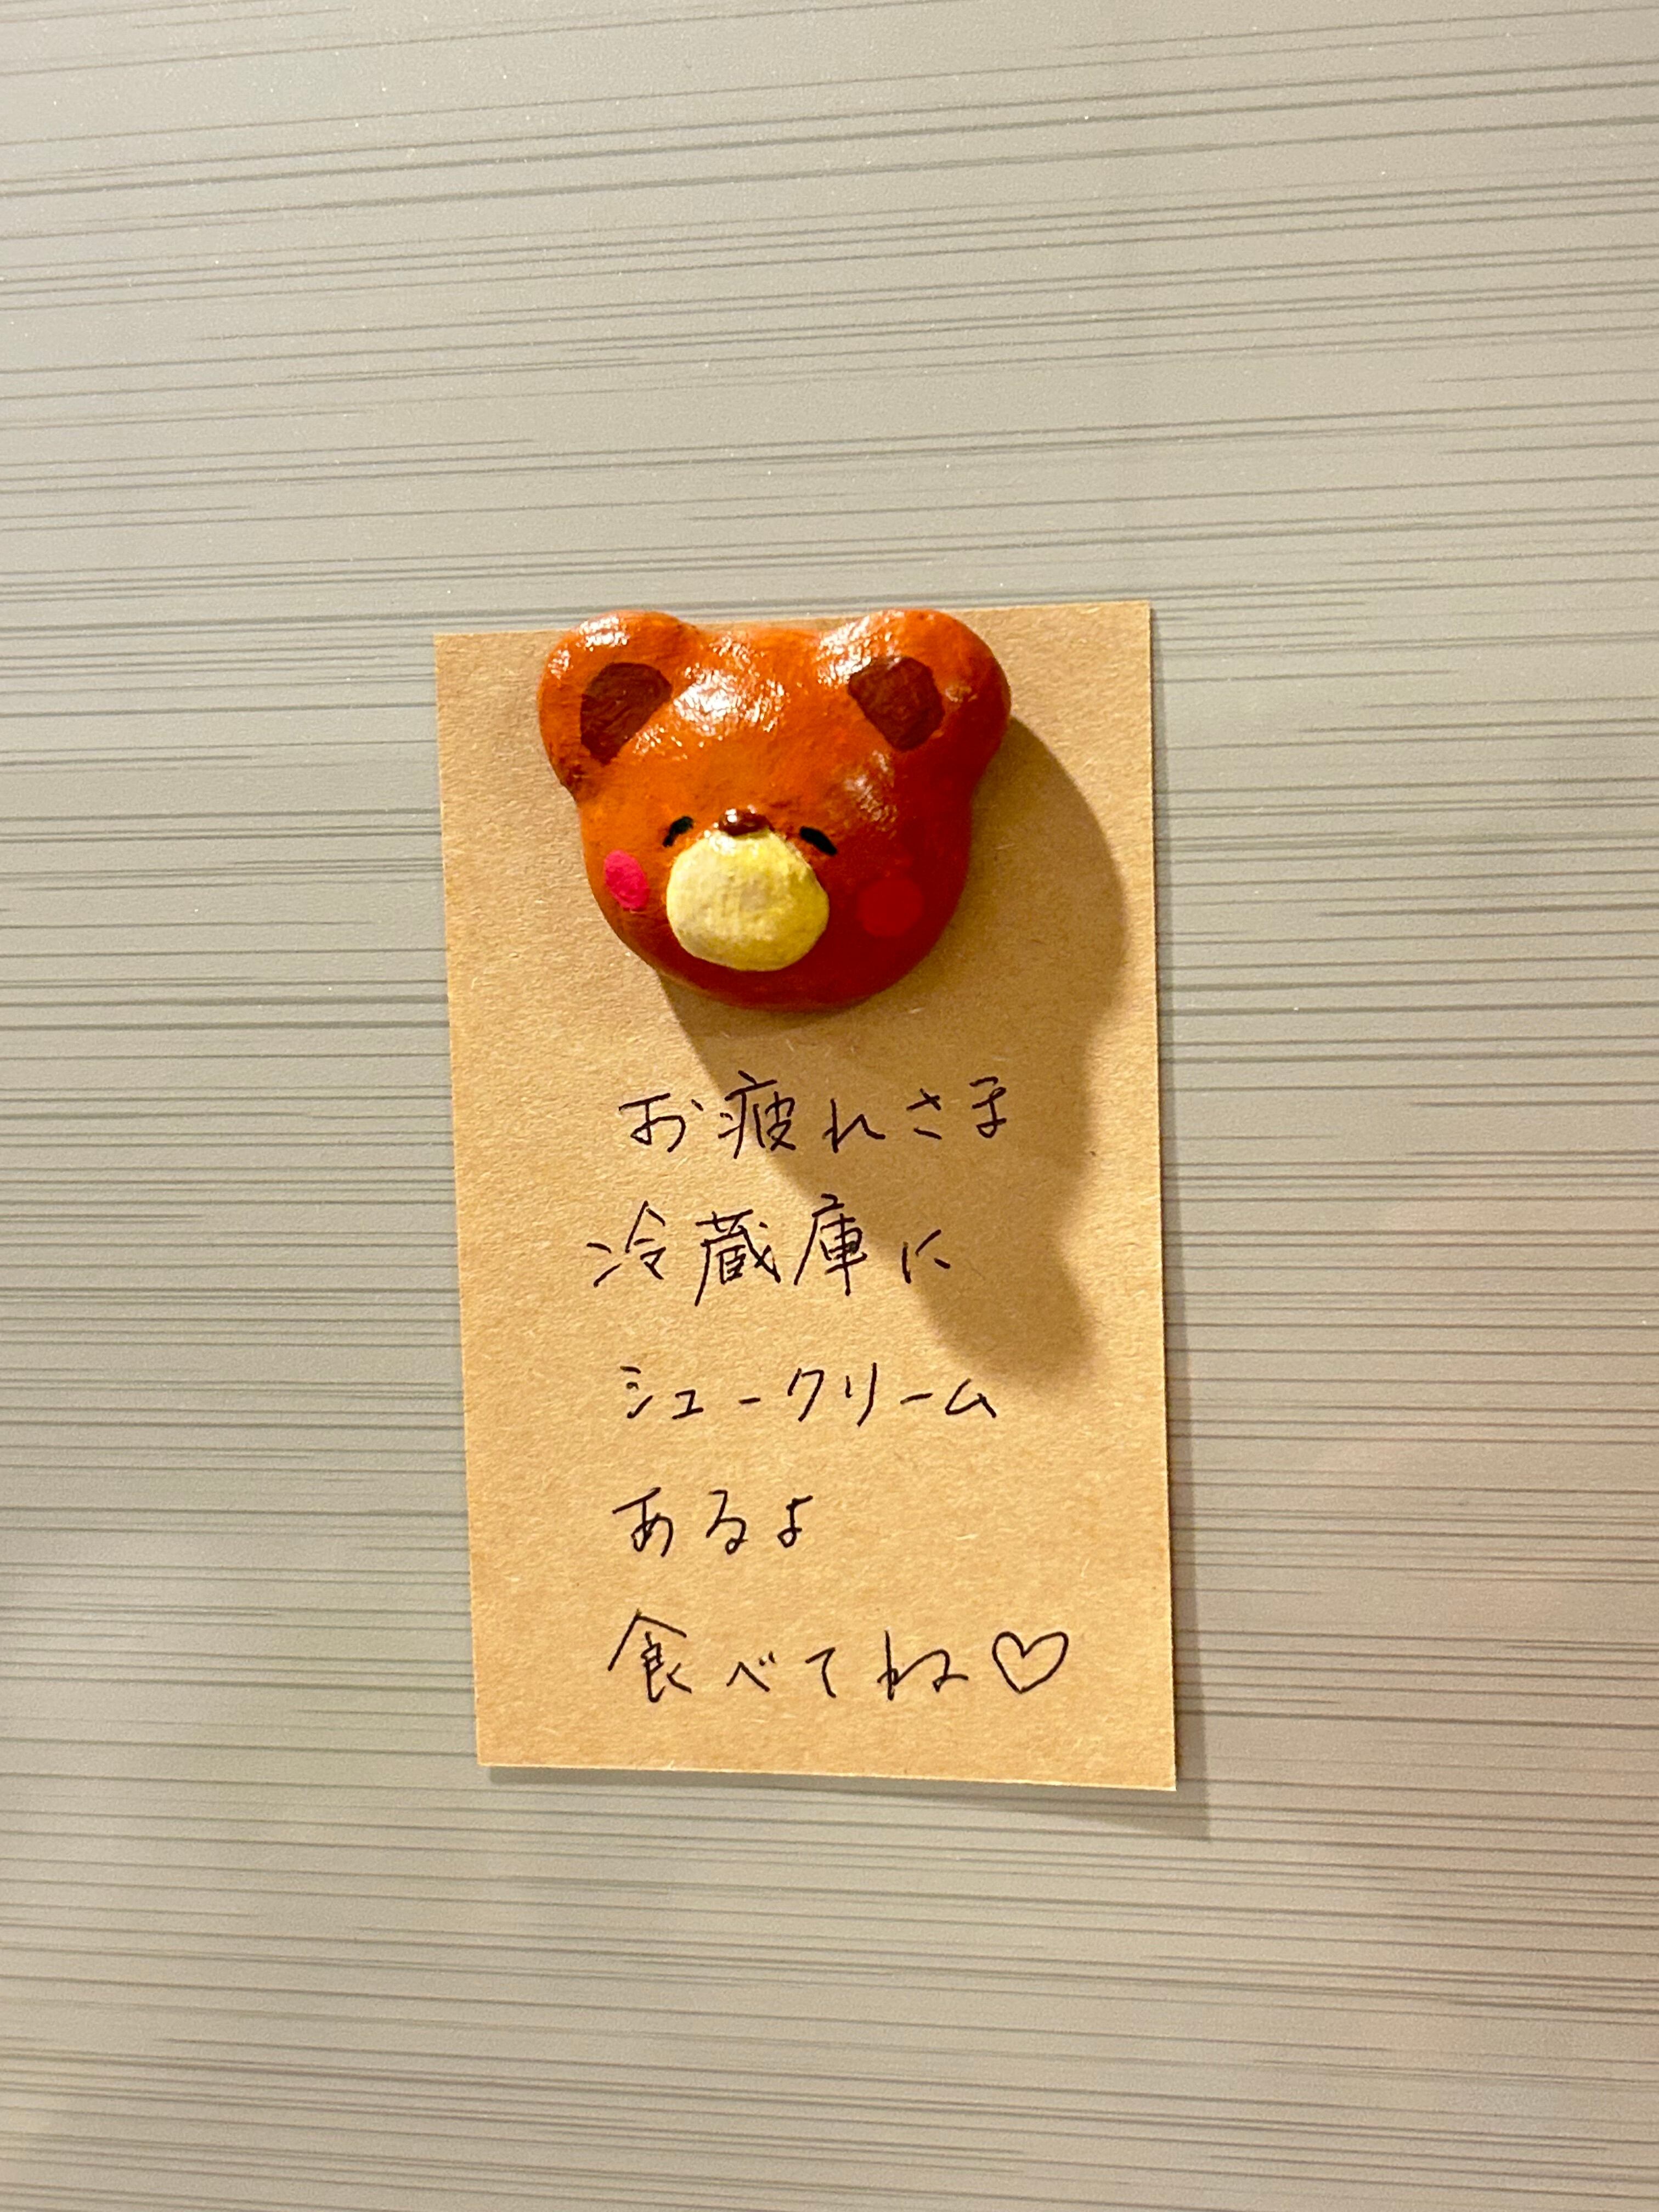 お疲れさま
冷蔵庫に
シュークリーム
あるよ
食べてね♡